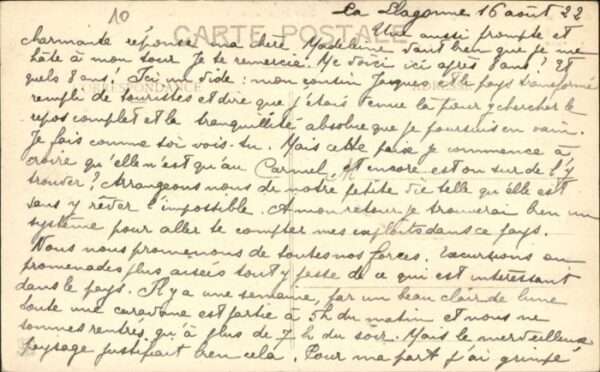 10
CARTE POSTALE
La Llagonne 16 août 22
Une aussi prompte et
charmante réponse ma chère Madeleine vaut bien que je me
hâte à mon tour. Je te remercie. Me voici ici après 8 ans ! Et
quels 8 ans ! Ici un vide : mon cousin Jacques et le pays transformé
CORRESPONDANCE
ADRESSE
rempli de touristes et dire que j'étais venue là pour y chercher le
repos complet et la tranquillité absolue que je poursuis en vain.
Je fais comme toi vois-tu. Mais cette paix je commence à
croire qu'elle n'est qu'au Carmel, et encore est on sûr de l'y
trouver ? Arrangeons nous de notre petite vie telle qu'elle est
sans y rêver l'impossible. A mon retour je trouverai bien un
système pour aller te compter mes exploits dans ce pays.
Nous nous promenons de toutes nos forces. Excursions ou
promenades plus aisées tout y passe de ce qui est intéressant
dans le pays. Il y a une semaine, par un beau clair de lune
toute une caravane est partie à 5h du matin et nous ne
sommes rentrés qu'à plus de 7 h du soir. Mais le merveilleux
paysage justifiait bien cela. Pour ma part j'ai grimpé